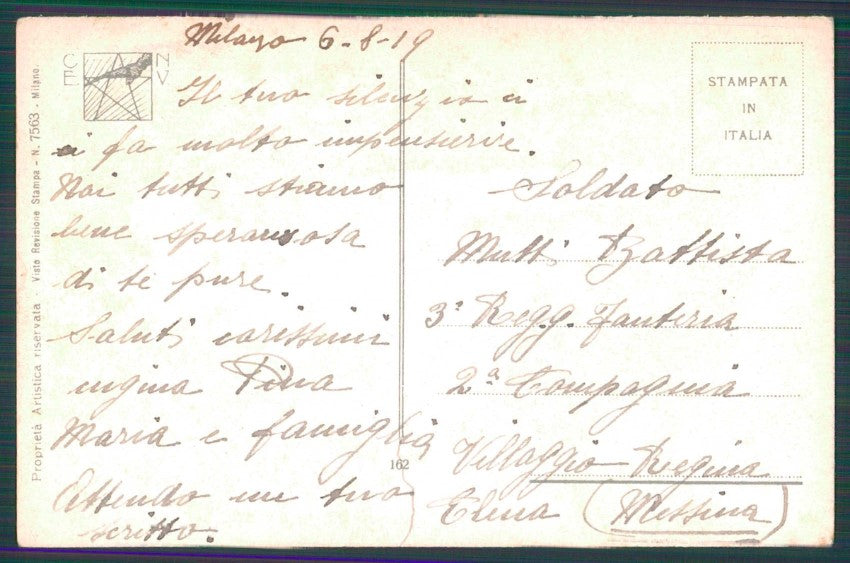 Milano 6-8-19
Il tuo silenzio ci
fa molto impensierire.
Noi tutti stiamo
bene speranzosa
di te pure.
Saluti carissimi
cugina Pina
Maria e famiglia
Attendo un tuo
scritto.
C E N V
Proprietà Artistica riservata Visto Revisione Stampa - N. 7563 - Milano
162
STAMPATA
IN
ITALIA
Soldato
Mutti Battista
3° Regg. Fanteria
2ª Compagnia
Villaggio Regina
Elena (Messina)